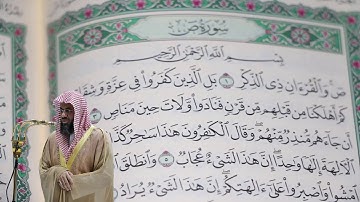 سُورَةُ صٓ
بِسْمِ ٱللَّهِ ٱلرَّحْمَٰنِ ٱلرَّحِيمِ
صٓ وَٱلْقُرْءَانِ ذِى ٱلذِّكْرِ ١ بَلِ ٱلَّذِينَ كَفَرُوا۟ فِى عِزَّةٍ وَشِقَا
كَمْ أَهْلَكْنَا مِن قَبْلِهِم مِّن قَرْنٍ فَنَادَوا۟ وَّلَاتَ حِينَ مَنَاصٍ
أَن جَآءَهُم مُّنذِرٌ مِّنْهُمْ وَقَالَ ٱلْكَٰفِرُونَ هَٰذَا سَٰحِرٌ كَذَّ
ٱلْءَالِهَةَ إِلَٰهًا وَٰحِدًا إِنَّ هَٰذَا لَشَىْءٌ عُجَابٌ ٥ وَٱنطَلَقَ
ٱمْشُوا۟ وَٱصْبِرُوا۟ عَلَىٰٓ ءَالِهَتِكُمْ إِنَّ هَٰذَا لَشَىْءٌ يُرَادُ